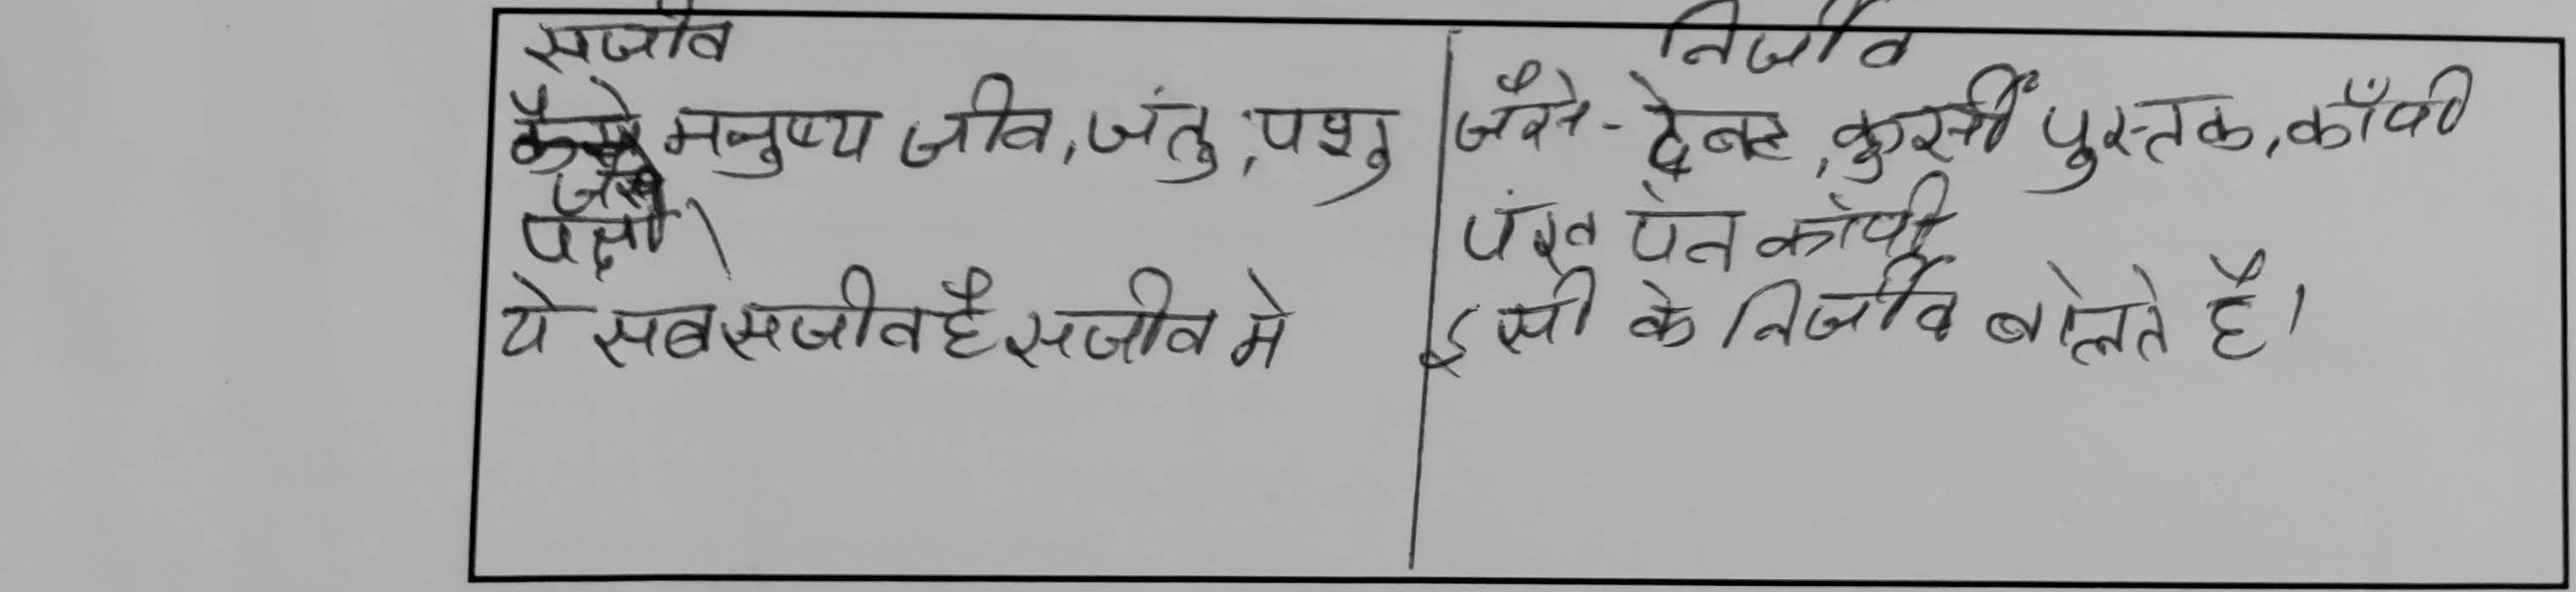 सजीव
मनुष्य जीव, जंतु, पशु
पक्षी।
ये सब सजीव है सजीव मे
निर्जीव
जैसे - टेबल, कुर्सी पुस्तक, कॉपी
पेन कॉपी
इसी के निर्जीव बोलते है।